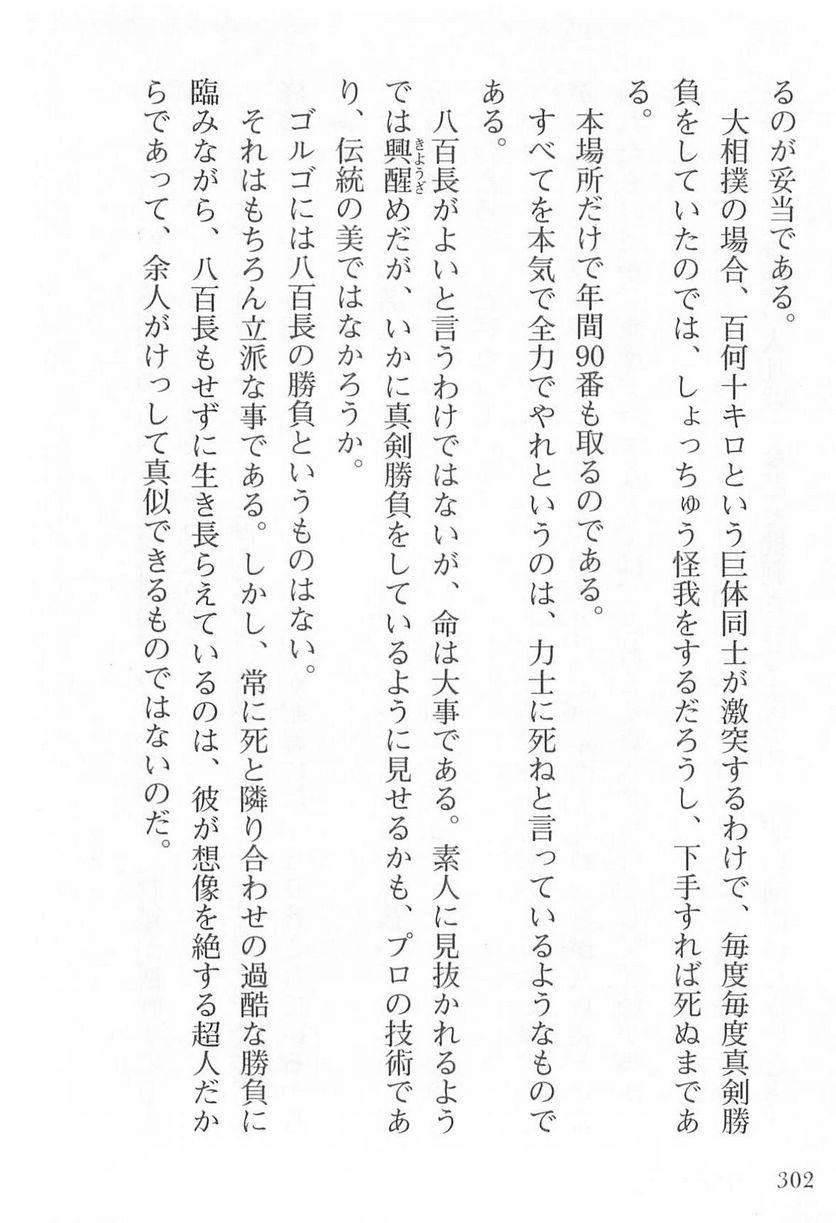 るのが妥当である。
大相撲の場合、百何十キロという巨体同士が激突するわけで、毎度毎度真剣勝
負をしていたのでは、しょっちゅう怪我をするだろうし、下手すれば死ぬまであ
る。
本場所だけで年間90番も取るのである。
すべてを本気で全力でやれというのは、力士に死ねと言っているようなもので
ある。
八百長がよいと言うわけではないが、命は大事である。素人に見抜かれるよう
では興醒めだが、いかに真剣勝負をしているように見せるかも、プロの技術であ
きようざ
り、伝統の美ではなかろうか。
ゴルゴには八百長の勝負というものはない。
それはもちろん立派な事である。しかし、常に死と隣り合わせの過酷な勝負に
臨みながら、八百長もせずに生き長らえているのは、彼が想像を絶する超人だか
らであって、余人がけっして真似できるものではないのだ。
302